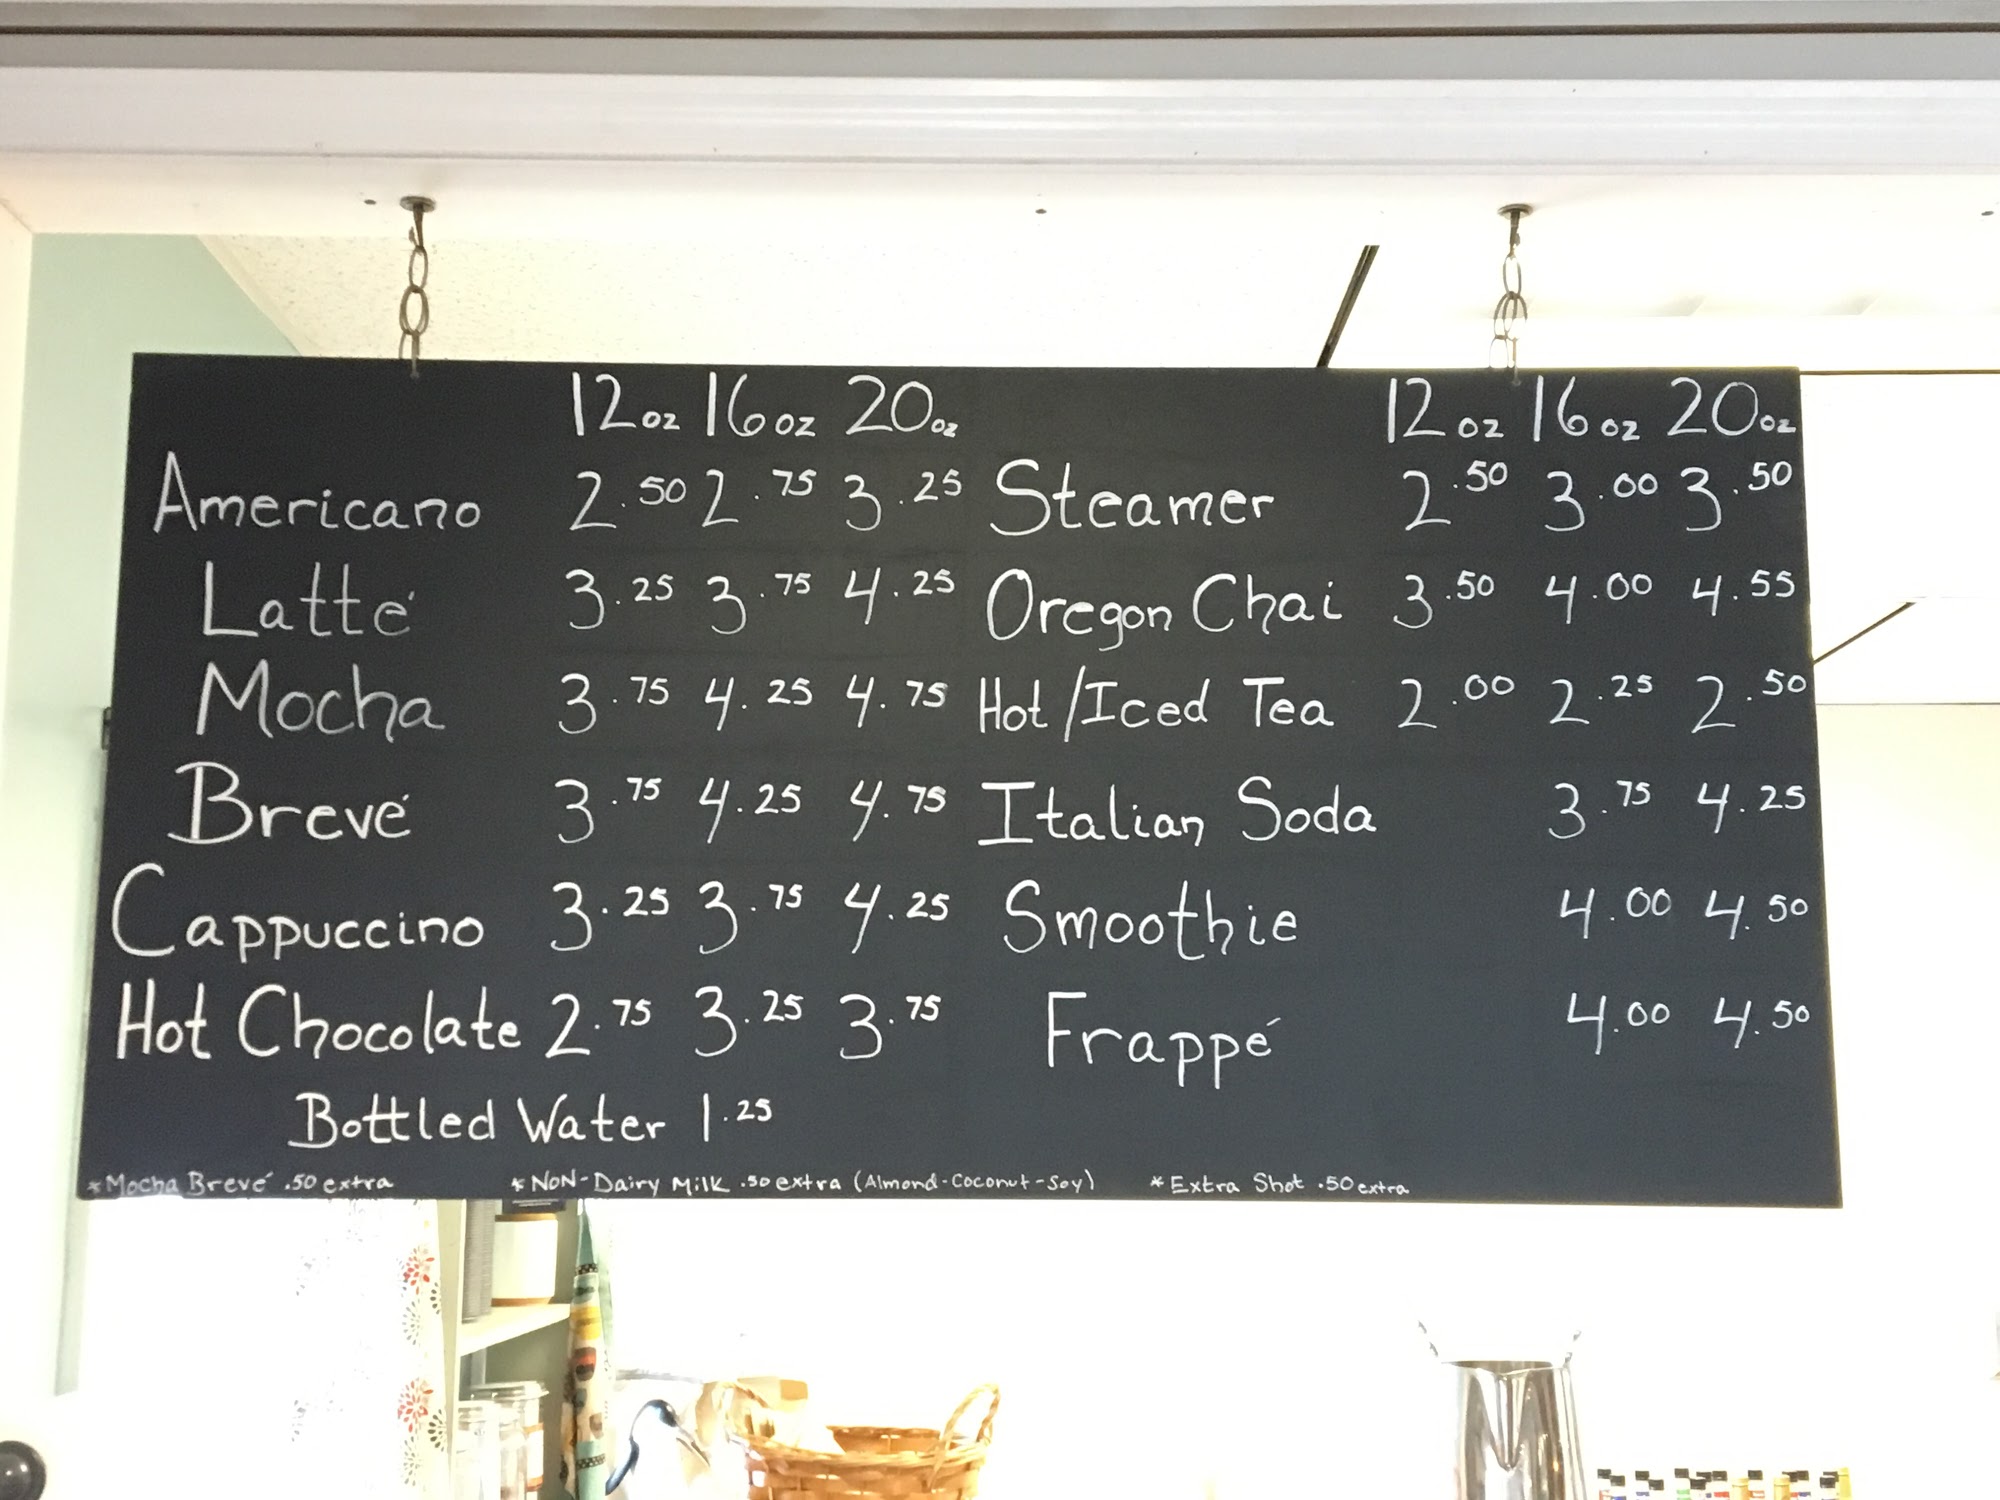 12oz 16oz 20oz 12oz 16oz 20oz
Americano 2.50 2.75 3.25 Steamer 2.50 3.00 3.50
Latté 3.25 3.75 4.25 Oregon Chai 3.50 4.00 4.55
Mocha 3.75 4.25 4.75 Hot/Iced Tea 2.00 2.25 2.50
Brevé 3.75 4.25 4.75 Italian Soda 3.75 4.25
Cappuccino 3.25 3.75 4.25 Smoothie 4.00 4.50
Hot Chocolate 2.75 3.25 3.75 Frappé 4.00 4.50
Bottled Water 1.25
*Mocha Brevé .50 extra *Non-Dairy Milk .50 extra (Almond-Coconut-Soy) *Extra Shot .50 extra